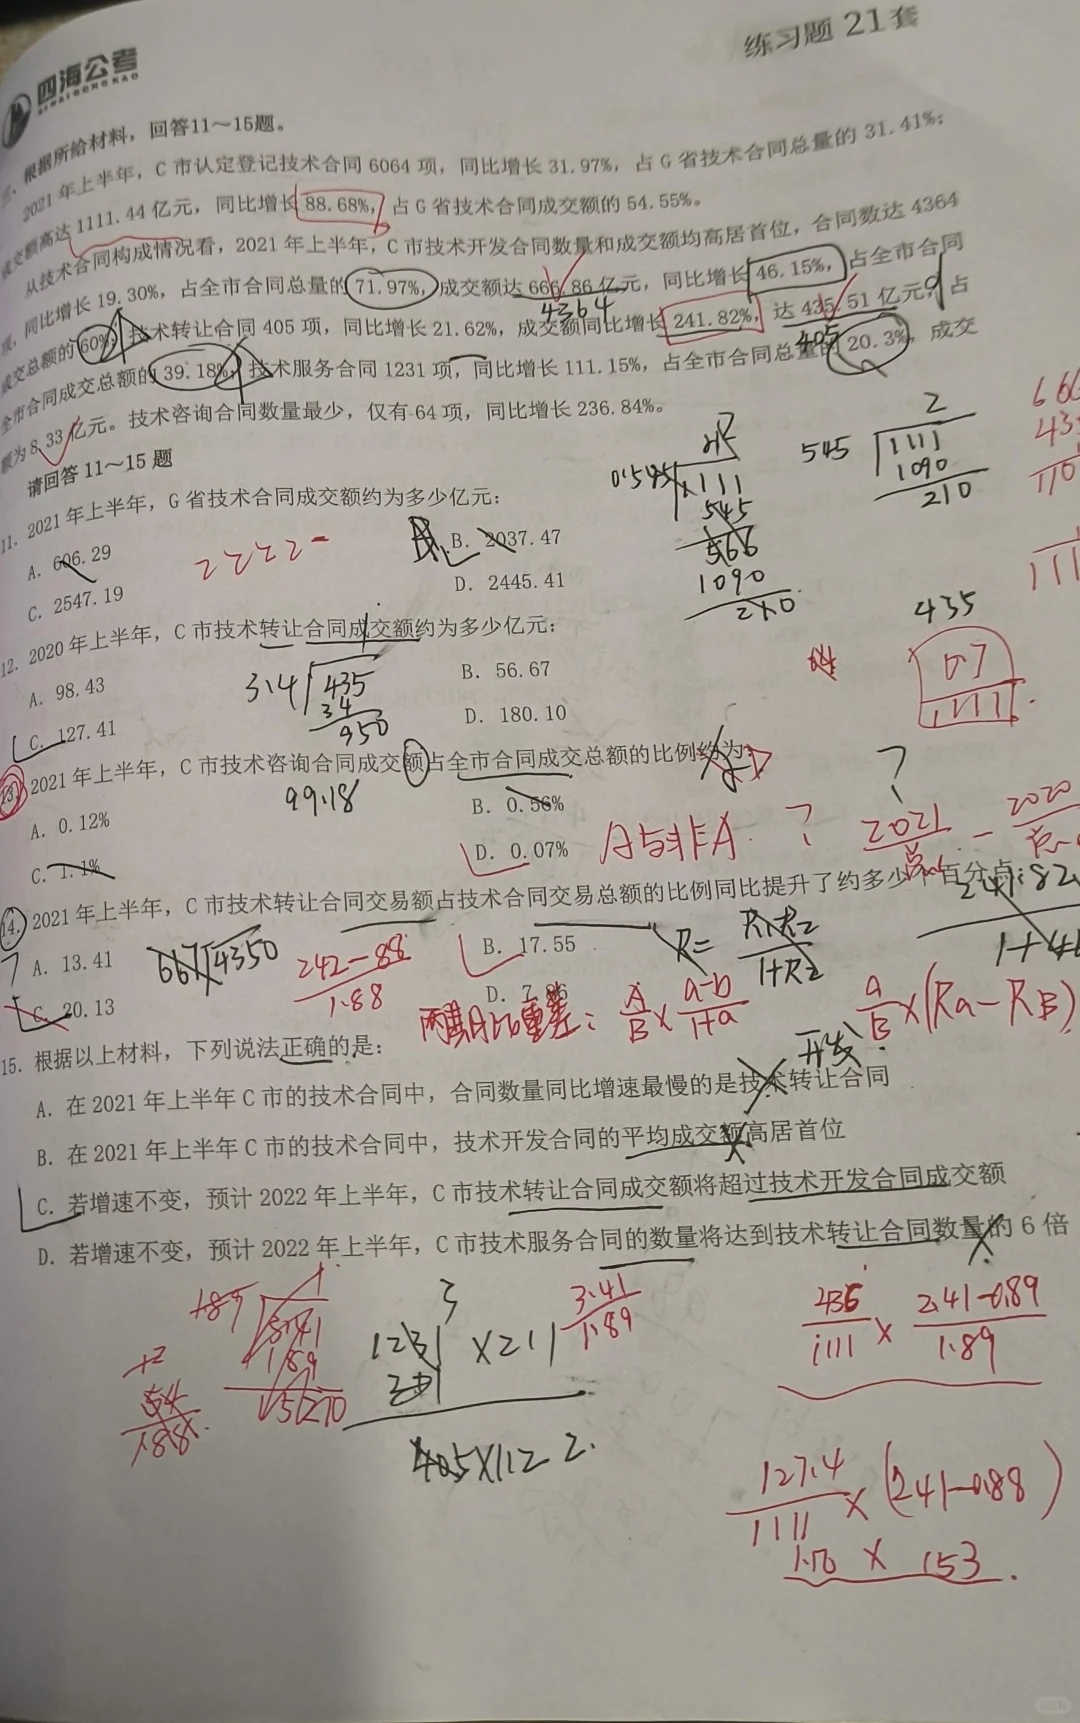 四海公考
SIHAIGONGKAO
练习题 21套
三、根据所给材料，回答11～15题。
2021年上半年，C市认定登记技术合同6064项，同比增长31.97%，占G省技术合同总量的31.41%；
成交额高达1111.44亿元，同比增长88.68%，占G省技术合同成交额的54.55%。
从技术合同构成情况看，2021年上半年，C市技术开发合同数量和成交额均高居首位，合同数达4364
项，同比增长19.30%，占全市合同总量的71.97%，成交额达666.86亿元，同比增长46.15%，占全市合同
成交总额的60%；技术转让合同405项，同比增长21.62%，成交额同比增长241.82%，达435.51亿元，占
全市合同成交总额的39.18%；技术服务合同1231项，同比增长111.15%，占全市合同总量的20.3%，成交
额为8.33亿元。技术咨询合同数量最少，仅有64项，同比增长236.84%。
4364
405
请回答11～15题
11. 2021年上半年，G省技术合同成交额约为多少亿元：
A. 606.29
B. 2037.47
C. 2547.19
D. 2445.41
545
2
1111
1090
210
0.545
1111
545
566
1090
12. 2020年上半年，C市技术转让合同成交额约为多少亿元：
A. 98.43
B. 56.67
C. 127.41
D. 180.10
3.4
435
34
950
435
0.7
1111
13. 2021年上半年，C市技术咨询合同成交额占全市合同成交总额的比例约为：
A. 0.12%
B. 0.56%
C. 1.1%
D. 0.07%
99.18
A与非A ?
?
2021
2020
14. 2021年上半年，C市技术转让合同交易额占技术合同交易总额的比例同比提升了约多少个百分点：
A. 13.41
B. 17.55
C. 20.13
D. 7.86
667
4350
242-88
1.88
R=
R1×R2
1+R2
两期比重差: A/B × a-b/1+a
a/B ×(Ra-RB)
15. 根据以上材料，下列说法正确的是：
开发
A. 在2021年上半年C市的技术合同中，合同数量同比增速最慢的是技术转让合同
B. 在2021年上半年C市的技术合同中，技术开发合同的平均成交额高居首位
C. 若增速不变，预计2022年上半年，C市技术转让合同成交额将超过技术开发合同成交额
D. 若增速不变，预计2022年上半年，C市技术服务合同的数量将达到技术转让合同数量的6倍
189
3.41
1.89
1231 ×211
3
3.41
1.89
405×1.22.
436/1111 × 2.41-0.89/1.89
127.4/1111 ×(2.41-0.88)
153